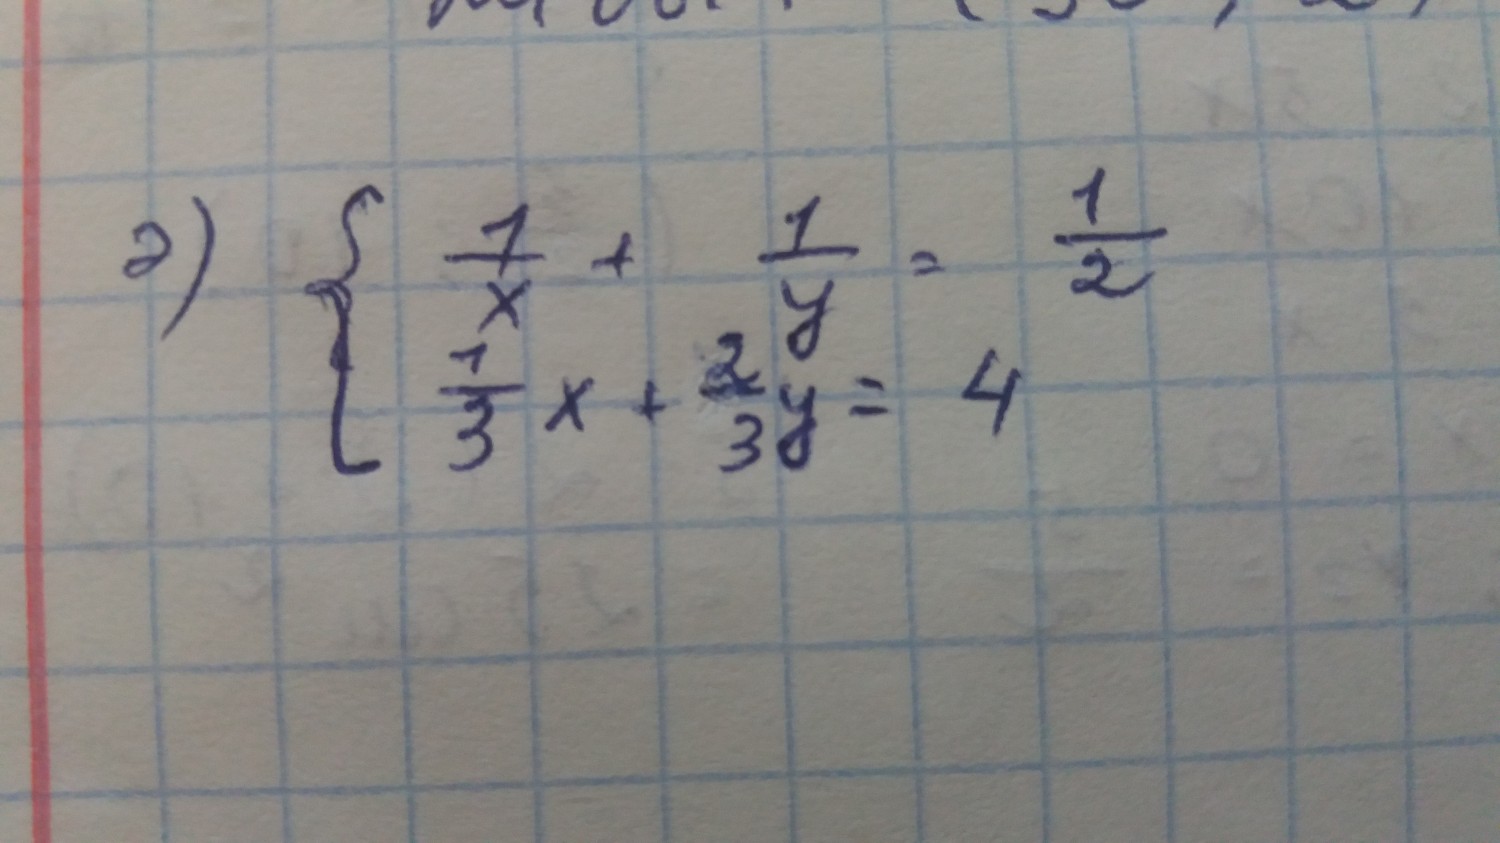 2) { 1/x + 1/y = 1/2
1/3 x + 2/3 y = 4